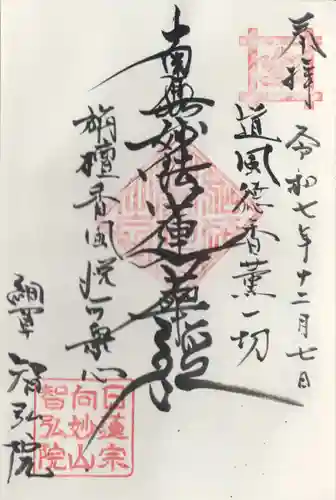 奉拝 令和七年十二月七日
道風徳香薫一切
南無妙法蓮華経
栴檀香風悦可衆心
智弘院
日蓮宗
向妙山
智弘院